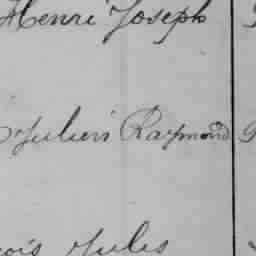 Henri Joseph
Julien Raymond
çois Jules